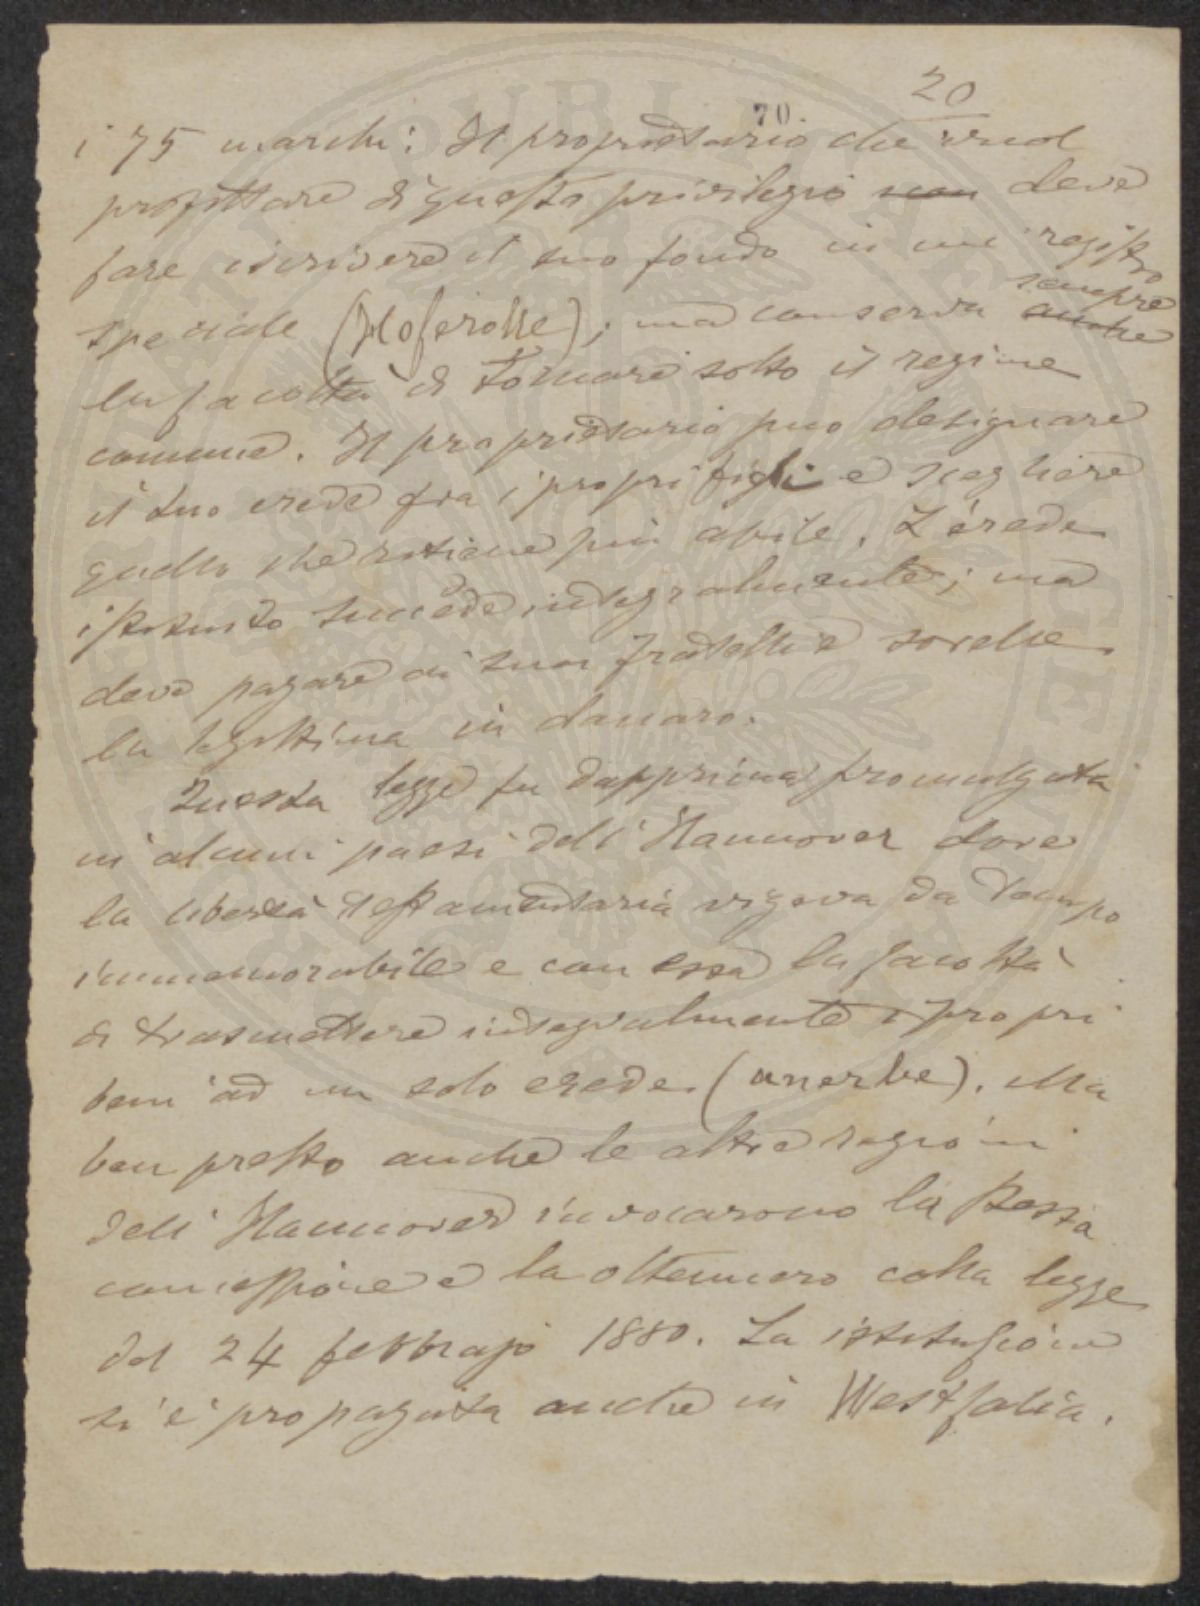 20
70.
i 75 marchi: Il proprietario che vuol
profittare di questo privilegio non deve
fare iscrivere il suo fondo in un registro
speciale (Höferolle); ma conserva sempre anche
la facoltà di tornare sotto il regime
comune. Il proprietario può designare
il suo erede fra i propri figli e scegliere
quello che ritiene più abile. L'erede
istituito succede integralmente; ma
deve pagare ai suoi fratelli e sorelle
la legittima in danaro.
Questa legge fu dapprima promulgata
in alcuni paesi dell'Hannover dove
la libertà testamentaria vigeva da tempo
immemorabile e con essa la facoltà
di trasmettere integralmente i propri
beni ad un solo erede (anerbe). Ma
ben presto anche le altre regioni
dell'Hannover invocarono la stessa
concessione e la ottennero colla legge
del 24 febbrajo 1880. La istituzione
si è propagata anche in Westfalia.